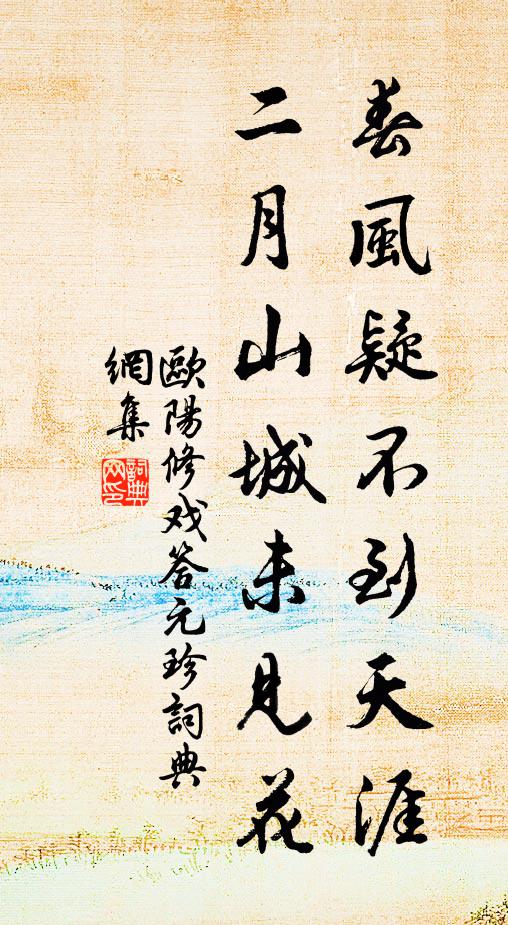 春風疑不到天涯
二月山城未見花
歐陽修戏答元珍詞典
網集
詞典
网印